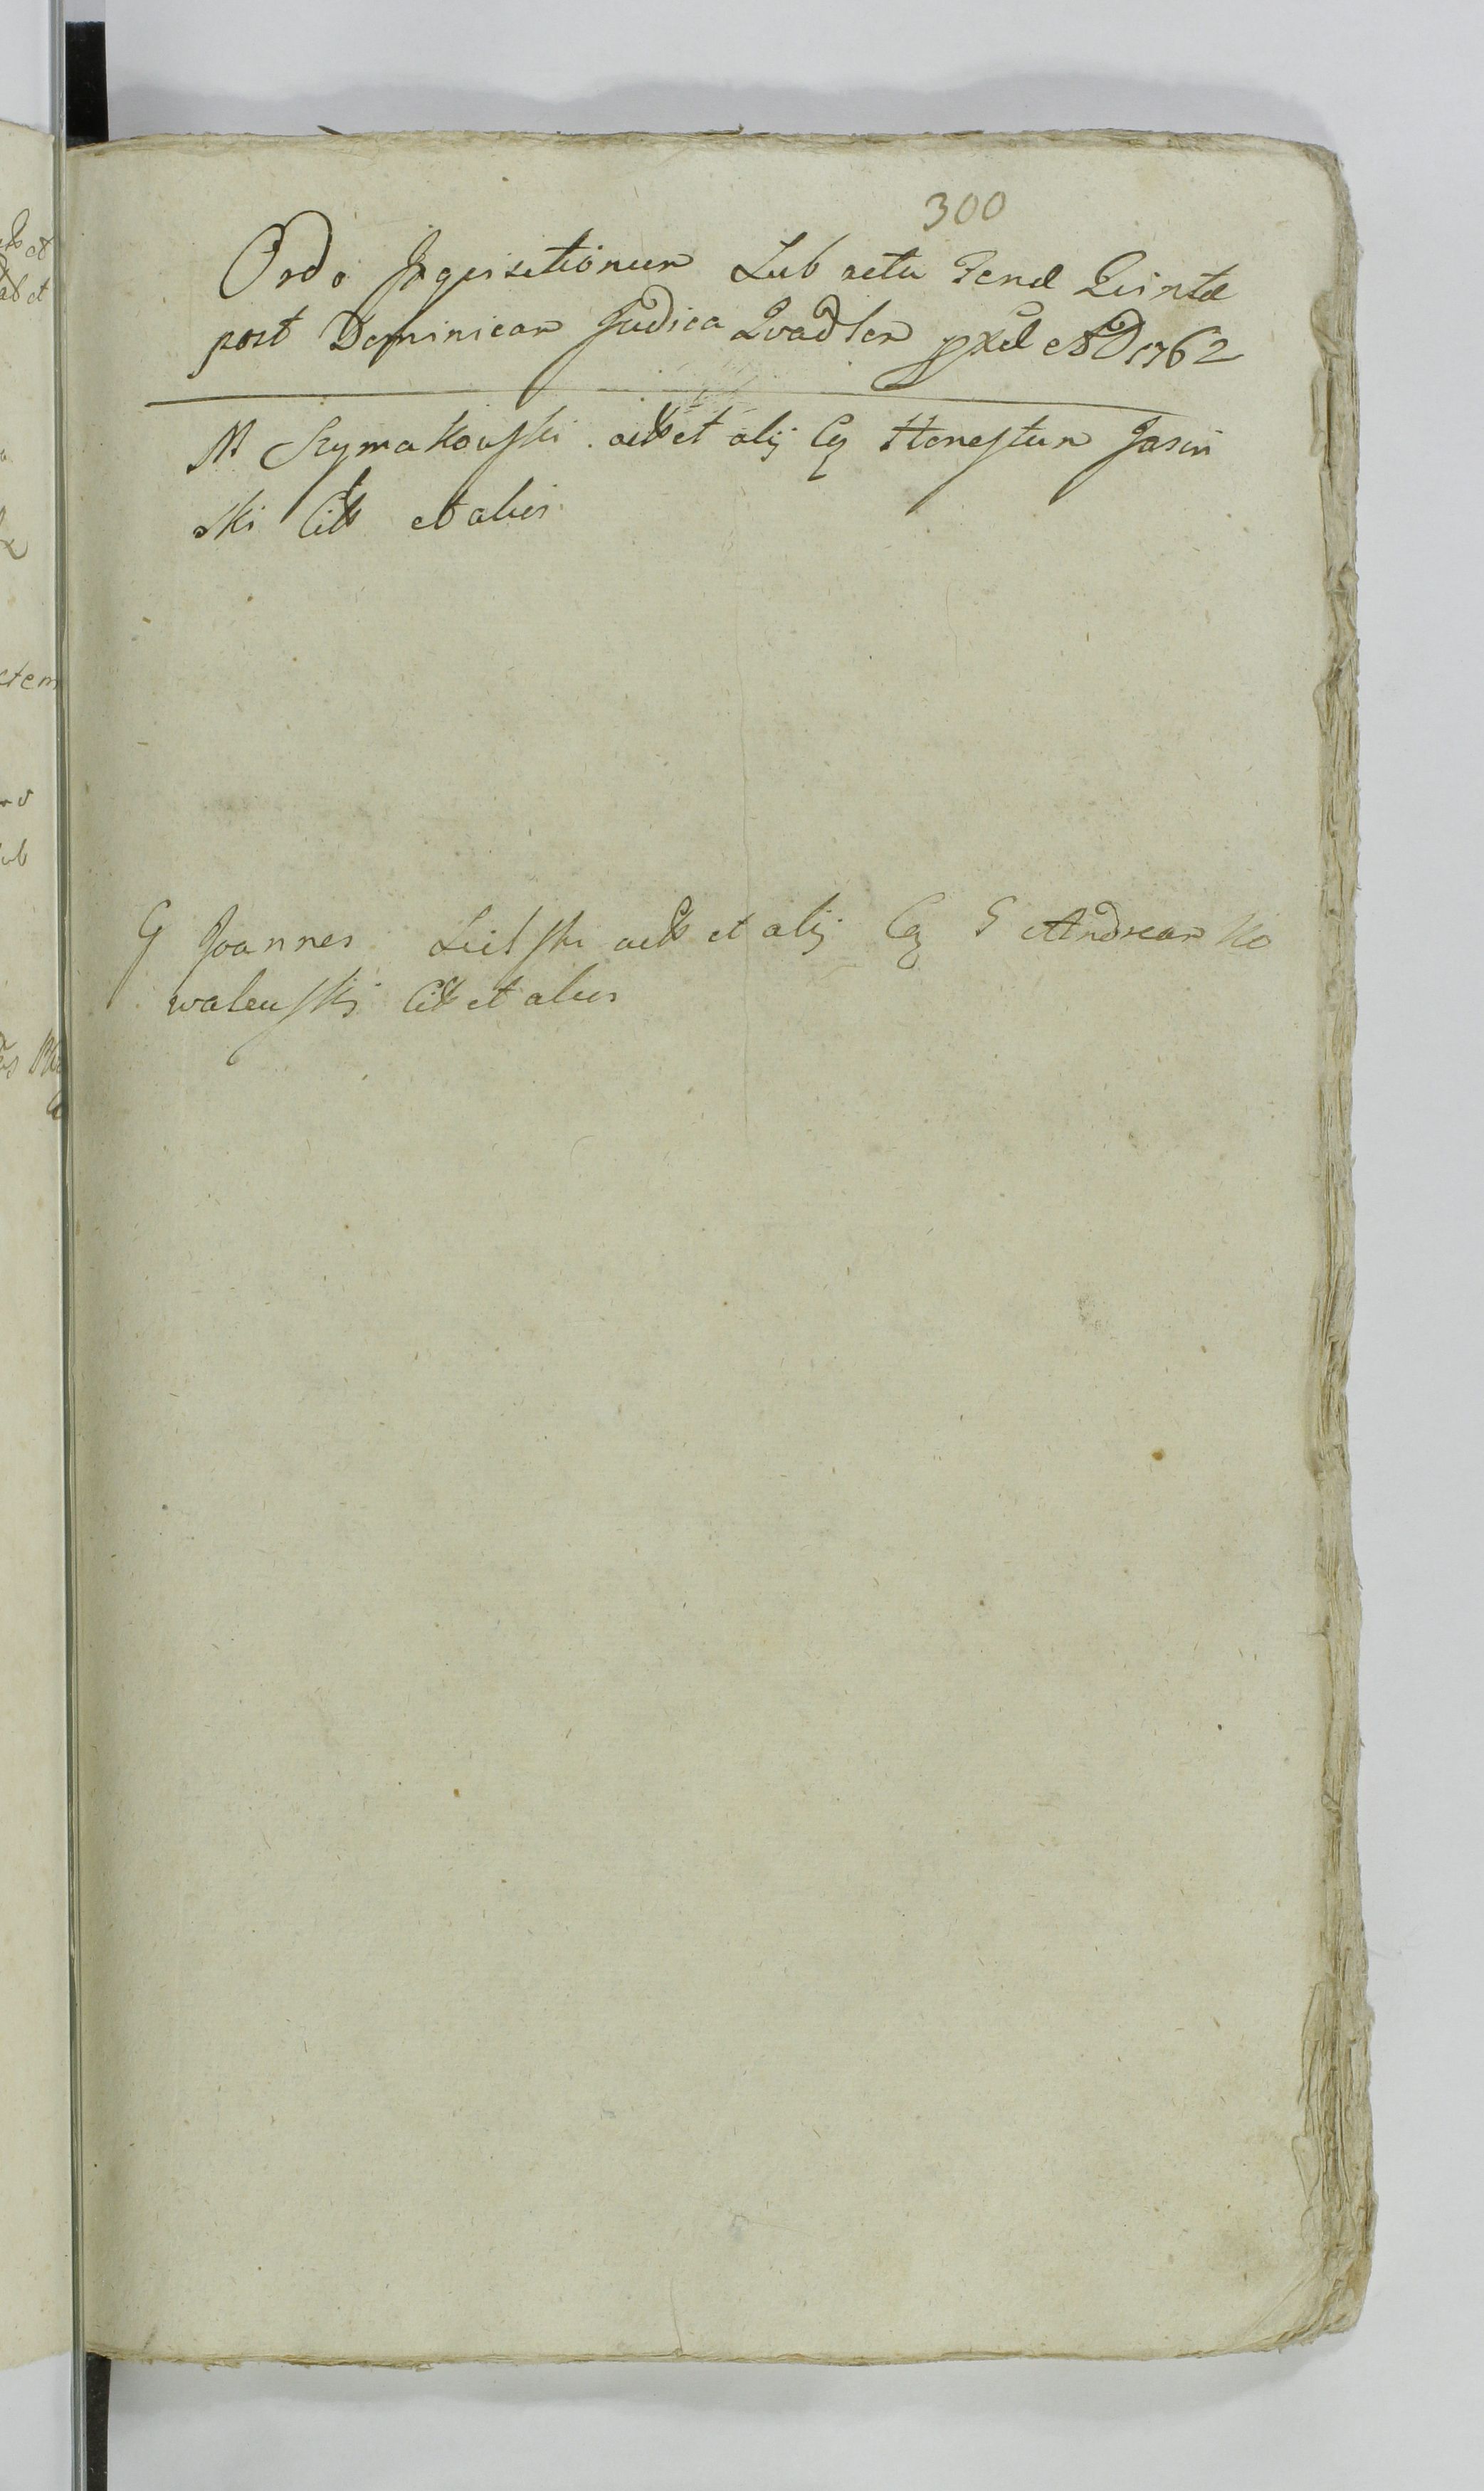 300
Ordo Inquisitionum Sub actu Feriæ Quintæ
post Dominicam Judica Quadlem pxæ AD 1762
M Szymakowski acts et alij Cq Honestum Jasin
ski Cits et alios
G Joannes acts et alij Cq G Andream Ko
walewski Cits et alios